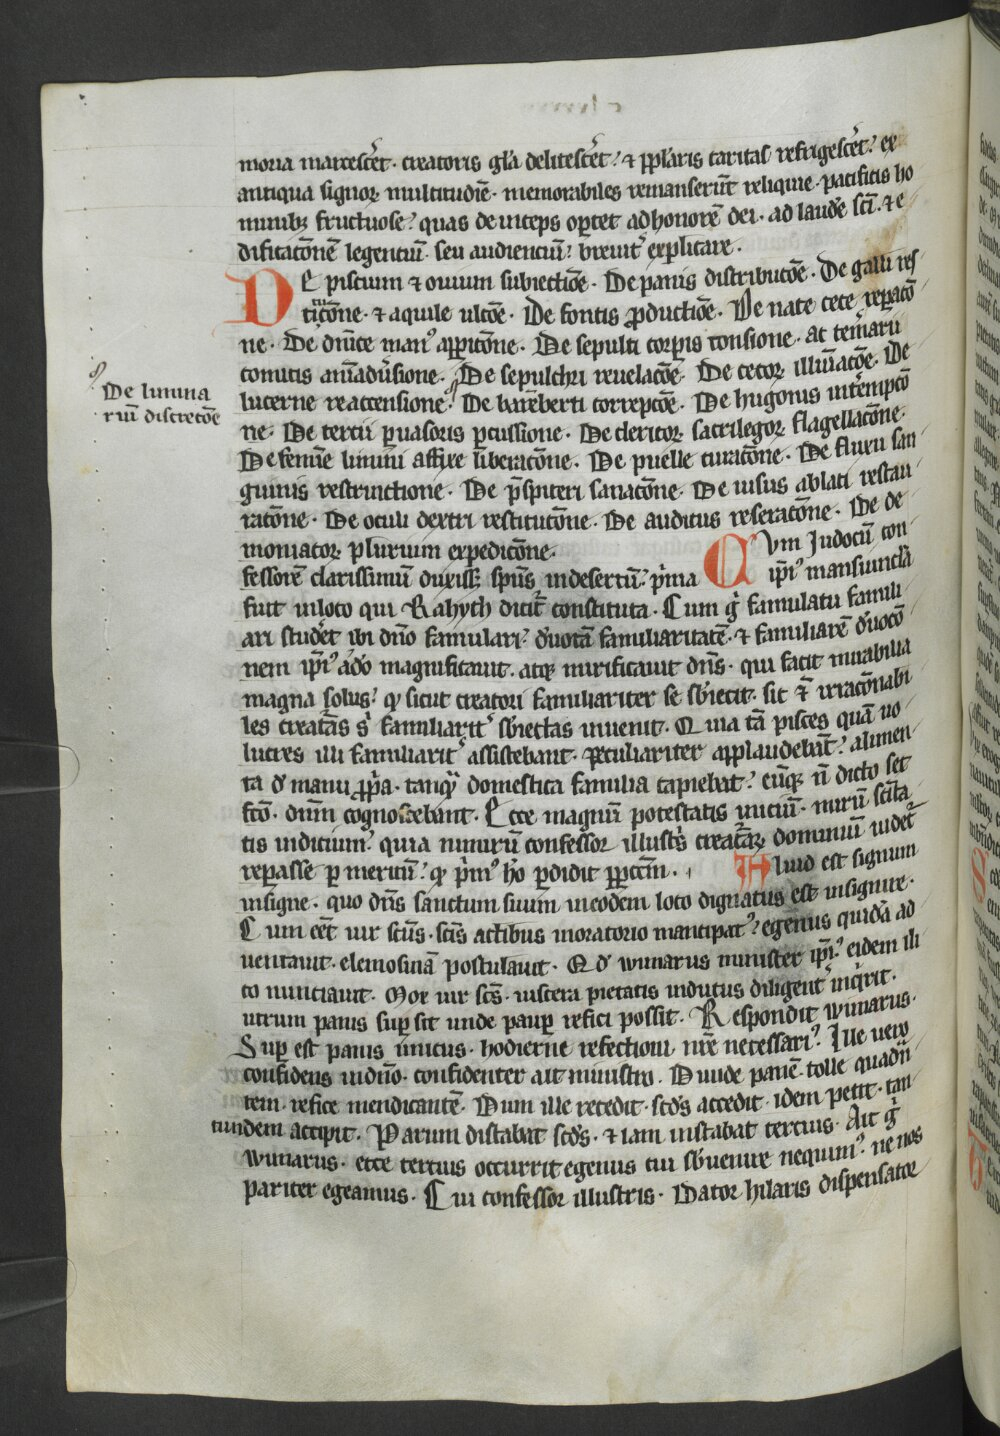 moria marcescēt. creatoris gl'a delitescēt? ⁊ ꝓxl'aris caritas refrigescēt? ex
antiqua signoꝝ multitudīe. memorabiles remanserūt reliquie. pacificis ho
minibꝫ fructuose? quas deinceps oꝑtet ad honorē dei. ad laudē scī. ⁊ e
dificatōnē legentiū. seu audientiū? breuit' explicare.
DE piscium ⁊ ouium subiectiōe. De panis distributōe. De galli res
titicōne. ⁊ aquile ultōe. De fontis ꝓductiōe. De nate cete reꝑacō
ne. De dn̄ice man' apꝑicōne. De sepulti corꝑis tonsione. ac temerarii
comitis aīaduersione. De sepulchri reuelacōe. De cecoꝝ illuīacōe. De
De lumina
riū discretōe
lucerne reaccensione. De barēberti correpcōe. De hugonis intēmptō
ne. De tercii ꝑuasoris ꝑcussione. De clericoꝝ sacrilegoꝝ flagellacōne.
De femīe limini affixe liberacōne. De puelle curacōne. De fluxu san
guinis restrinctione. De p̄sꝑiteri sanacōne. De uisus ablati restau
racōne. De oculi dextri restitucōne. De auditus reseracōne. De de
moniatoꝝ plurium expedicōne.
CVm Judocū con
fessorē clarissimū duxisset spūs in desertū? p̄ma ip̄i' mansiuncl'a
fuit in loco qui Rahych dicit' constituta. Cum g' famulatu famili
ari studēt ibi dn̄o famulari? d'uotā familiaritatē. ⁊ familiarē d'uocō
nem ip̄i' adō magnificauit. atqꝫ mirificauit dn̄s. qui facit mirabilia
magna solus? qͥ sicut creatori familiariter se sb'iecit. sic ⁊ irracōnabi
les creat'as s' familiarit' sb'iectas inuenit. Quia tā pisces quā uo
lucres illi familiarit' assistebant. peculiariter applaudebāt? alimen
ta d' manu ꝓpͥa. tanqͣ domestica familia capiebat? eūqꝫ n̄ dicto set
fc̄o. dn̄m cognoscebant. Ecce magnū potestatis inditiū. mirū scīta
tis indicium? quia nimirū confessor illustͥs creat'aꝝ dominiū uidet'
reꝑasse ꝑ meritū? qͩ p̄m' hō ꝑdidit ꝑ pctm̄. Aliud est signum
insigne. quo dn̄s sanctum suum in eodem loco dignatus est insignire.
Cum eēt uir scūs. scīs actibus in oratorio mancipat'? egenus quidā ad
uentauit. elemosinā postulauit. Qd' wimarus minister ip̄i' eidem ili
co nunciauit. Mox uir scs̄. uiscera pietatis indutus diligent' inqͥrit.
utrum panis suꝑ sit unde pauꝑ refici possit. Respondit wimarus.
Suꝑ est panis unicus. hodierne refectioni nr̄e necessari'. Ille uero
confidens in dn̄o. confidenter ait ministro. Diuide panē. tolle quadrā
tem. refice mendicantē. Dum ille recedit. scd's accedit. idem petit. tan
tundem accipit. Parum distabat scd's. ⁊ iam instabat tercius. Ait g'
wimarus. ecce tercius occurrit egenus cui sb'uenire nequim'. ne nos
pariter egeamus. Cui confessor illustris. Dator hilaris dispensator